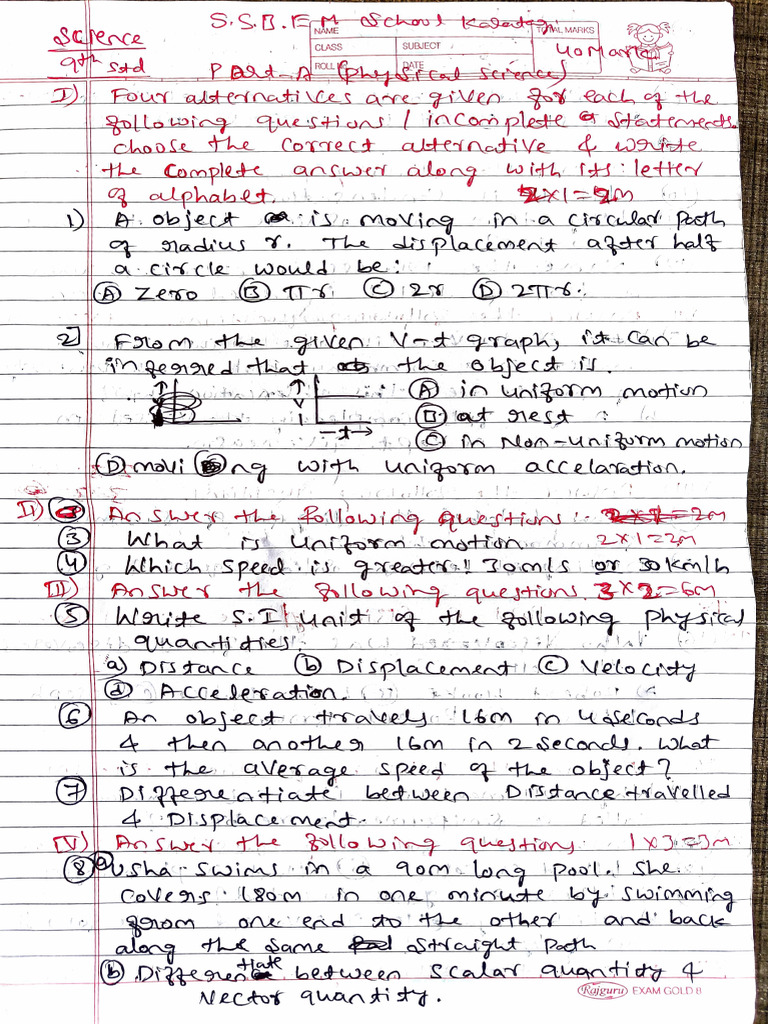 S.S.B.E.M School Karatagi
NAME
TOTAL MARKS
Science
CLASS
SUBJECT
40 Marks
9th Std
ROLL
DATE
Part-A (Physical Science)
I) Four alternatives are given for each of the
following questions / incomplete statements.
choose the correct alternative & write
the complete answer along with its letter
of alphabet. 2x1=2m
1) A object is moving in a circular path
of radius r. The displacement after half
a circle would be:
(A) Zero (B) πr (C) 2r (D) 2πr.
2] From the given V-t graph, it can be
inferred that the object is.
(A) in uniform motion
V
(B) at rest
-t→
(C) in Non-uniform motion
(D) moving with uniform accelaration.
II) Answer the following questions 2x1=2m
3 What is uniform motion 2x1=2m
4 Which speed is greater! 30m/s or 30km/h
III) Answer the following questions. 3x2=6m
5 Write S.I unit of the following physical
quantities.
a) Distance (b) Displacement (c) Velocity
(d) Acceleration.
6 An object travels 16m in 4 seconds
& then another 16m in 2 seconds. What
is the average speed of the object?
7 Differentiate between Distance travelled
& Displacement.
IV) Answer the following questions 1x3=3m
8 (a) Usha swims in a 90m long pool. She
covers 180m in one minute by swimming
from one end to the other and back
along the same straight path
(b) Differentiate between scalar quantity &
Vector quantity.
Rajguru EXAM GOLD 8